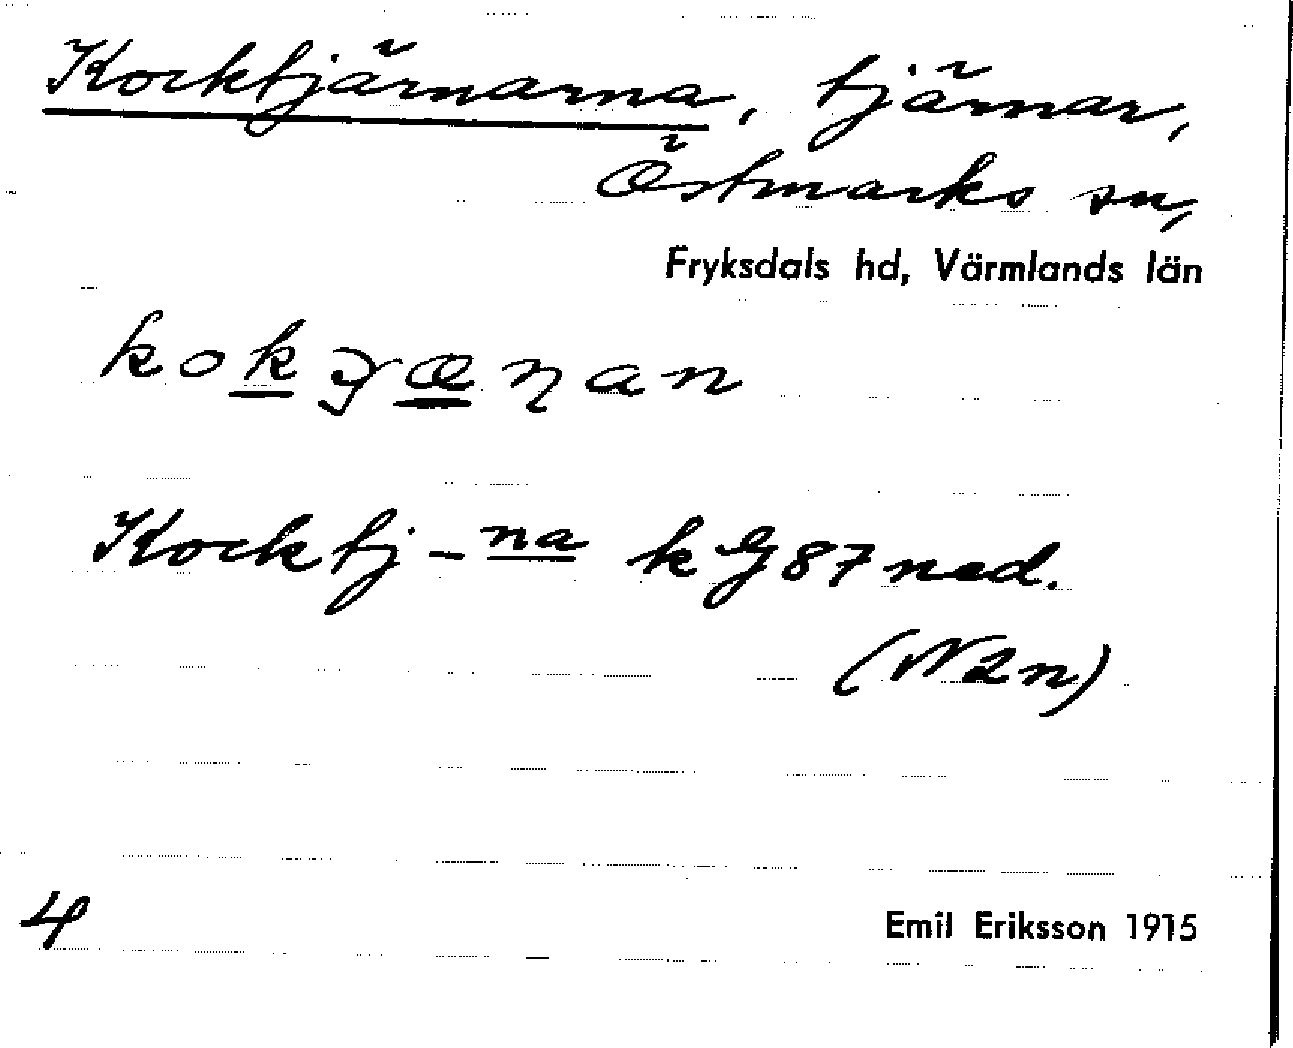 Kocktjärnarna, tjärnar,
Östmarks sn,
Fryksdals hd, Värmlands län
Kocktj-na k G 87 ned.
4
Emil Eriksson 1915